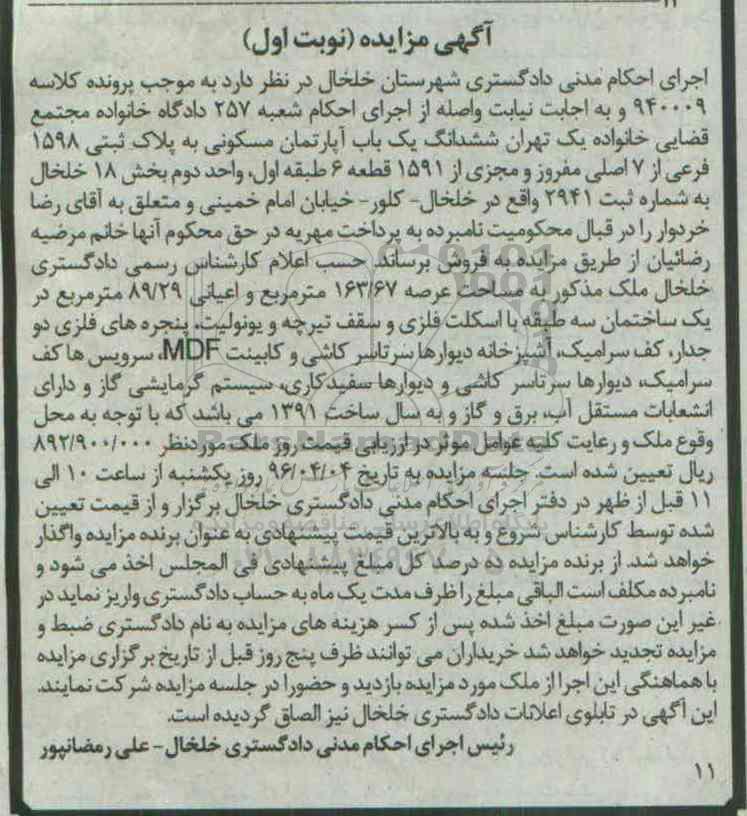 آگهی مزایده (نوبت اول)
اجرای احکام مدنی دادگستری شهرستان خلخال در نظر دارد به موجب پرونده کلاسه
۹۴۰۰۰۹ و به اجابت نیابت واصله از اجرای احکام شعبه ۲۵۷ دادگاه خانواده مجتمع
قضایی خانواده یک تهران ششدانگ یک باب آپارتمان مسکونی به پلاک ثبتی ۱۵۹۸
فرعی از ۷ اصلی مفروز و مجزی از ۱۵۹۱ قطعه ۶ طبقه اول، واحد دوم بخش ۱۸ خلخال
به شماره ثبت ۲۹۴۱ واقع در خلخال- کلور- خیابان امام خمینی و متعلق به آقای رضا
خردوار را در قبال محکومیت نامبرده به پرداخت مهریه در حق محکوم آنها خانم مرضیه
رضائیان از طریق مزایده به فروش برساند. حسب اعلام کارشناس رسمی دادگستری
خلخال ملک مذکور به مساحت عرصه ۱۶۳/۶۷ مترمربع و اعیانی ۸۹/۲۹ مترمربع در
یک ساختمان سه طبقه با اسکلت فلزی و سقف تیرچه و یونولیت، پنجره های فلزی دو
جدار، کف سرامیک، آشپزخانه دیوارها سرتاسر کاشی و کابینت MDF، سرویس ها کف
سرامیک، دیوارها سرتاسر کاشی و دیوارها سفیدکاری، سیستم گرمایشی گاز و دارای
انشعابات مستقل آب، برق و گاز و به سال ساخت ۱۳۹۱ می باشد که با توجه به محل
وقوع ملک و رعایت کلیه عوامل موثر در ارزیابی قیمت روز ملک موردنظر ۸۹۲/۹۰۰/۰۰۰
ریال تعیین شده است. جلسه مزایده به تاریخ ۹۶/۰۴/۰۴ روز یکشنبه از ساعت ۱۰ الی
۱۱ قبل از ظهر در دفتر اجرای احکام مدنی دادگستری خلخال برگزار و از قیمت تعیین
شده توسط کارشناس شروع و به بالاترین قیمت پیشنهادی به عنوان برنده مزایده واگذار
خواهد شد. از برنده مزایده ده درصد کل مبلغ پیشنهادی فی المجلس اخذ می شود و
نامبرده مکلف است الباقی مبلغ را ظرف مدت یک ماه به حساب دادگستری واریز نماید در
غیر این صورت مبلغ اخذ شده پس از کسر هزینه های مزایده به نام دادگستری ضبط و
مزایده تجدید خواهد شد خریداران می توانند ظرف پنج روز قبل از تاریخ برگزاری مزایده
با هماهنگی این اجرا از ملک مورد مزایده بازدید و حضورا در جلسه مزایده شرکت نمایند.
این آگهی در تابلوی اعلانات دادگستری خلخال نیز الصاق گردیده است.
رئیس اجرای احکام مدنی دادگستری خلخال- علی رمضانپور
۱۱